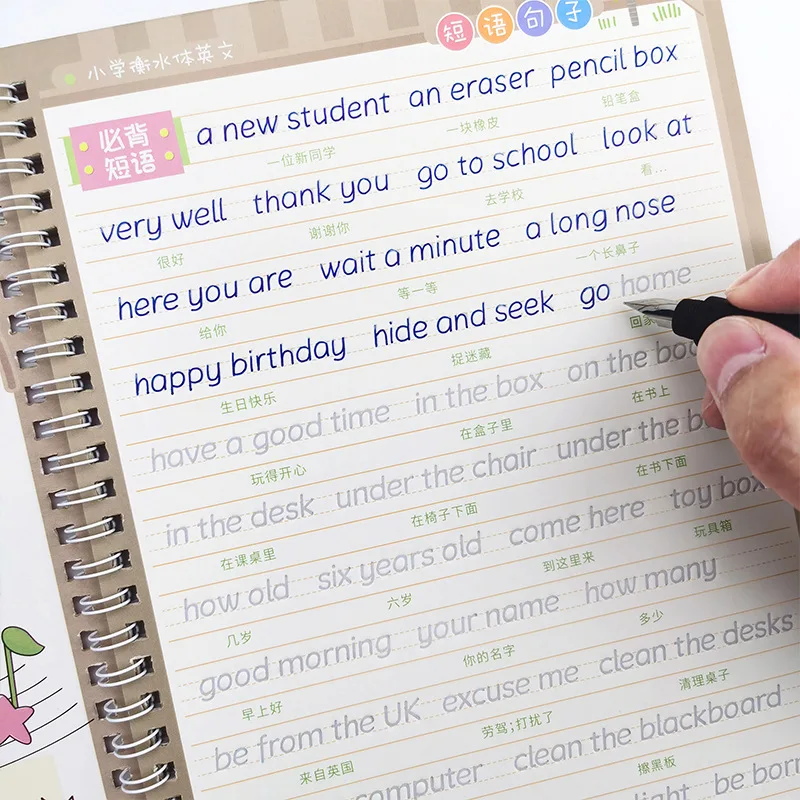 小学衡水体英文 短语句子
必背短语
a new student an eraser pencil box
一位新同学 一块橡皮 铅笔盒
very well thank you go to school look at
很好 谢谢你 去学校 看...
here you are wait a minute a long nose
给你 等一等 一个长鼻子
happy birthday hide and seek go home
生日快乐 捉迷藏 回家
have a good time in the box on the
玩得开心 在盒子里 在书上
in the desk under the chair under the
在课桌里 在椅子下面 在书下面
how old six years old come here toy box
几岁 六岁 到这里来 玩具箱
good morning your name how many
早上好 你的名字 多少
be from the UK excuse me clean the desks
来自英国 劳驾;打扰了 清理桌子
computer clean the blackboard
擦黑板
light be born